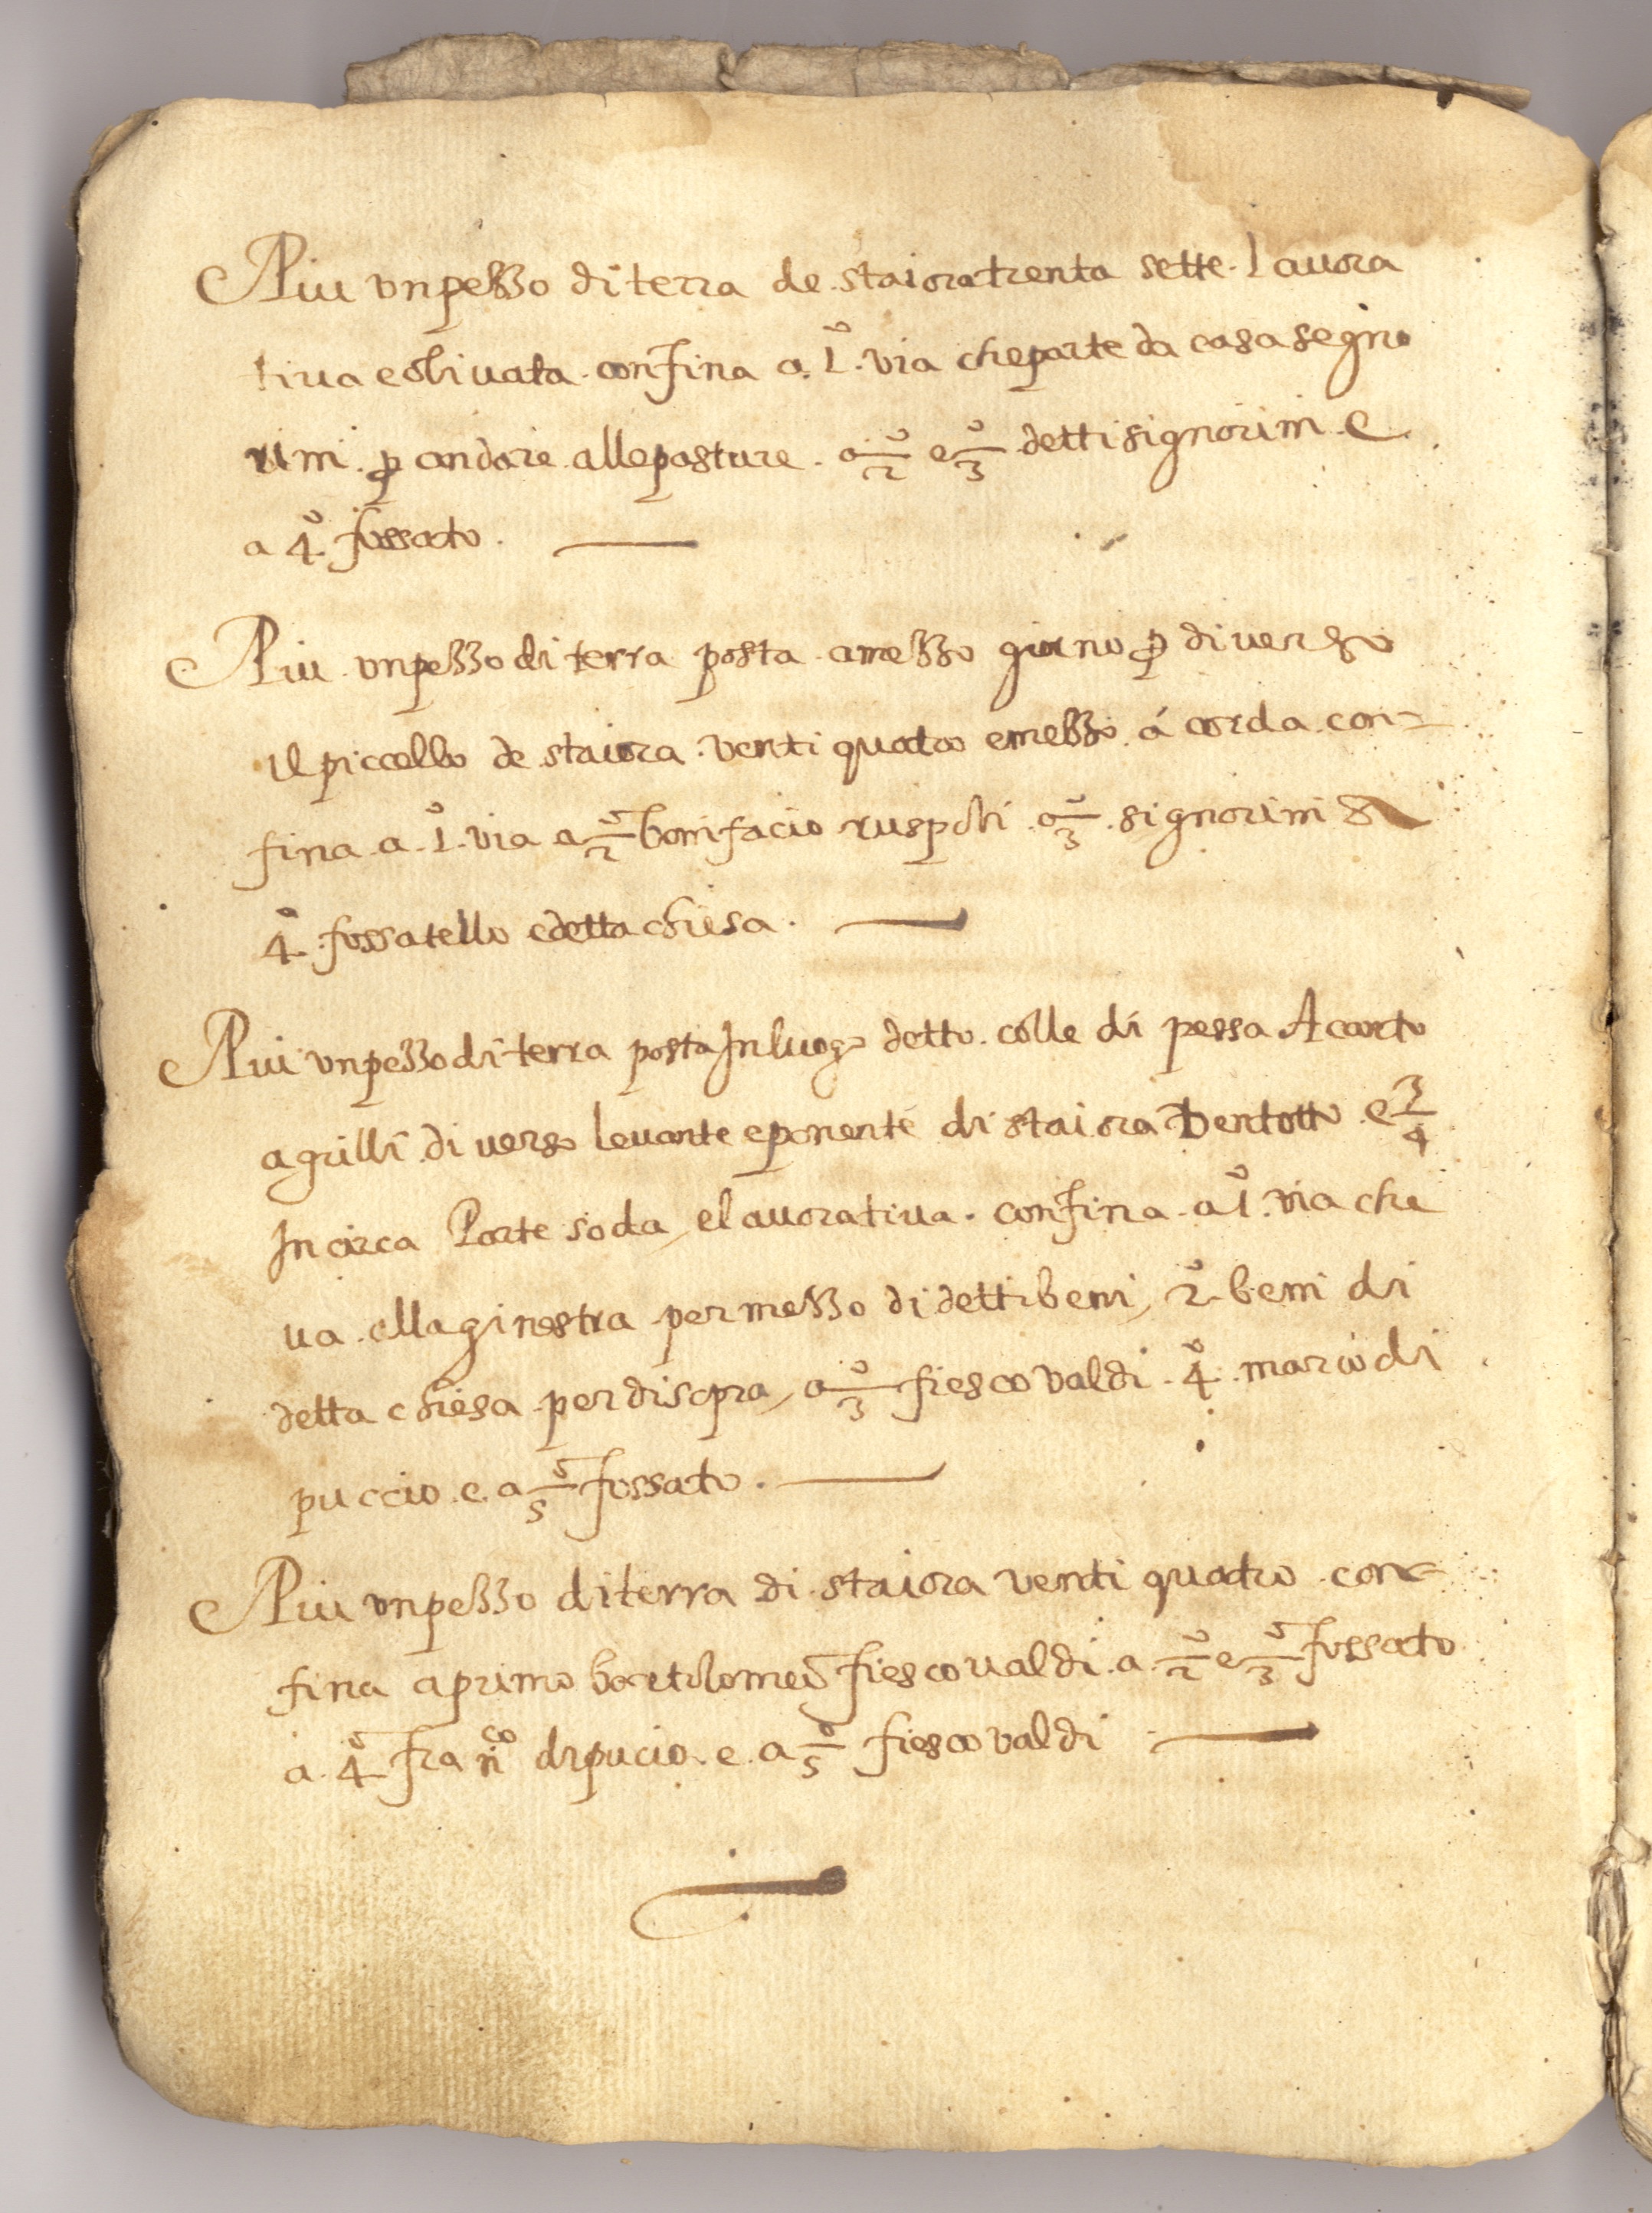 Piu vn pezzo di terra de staiora trenta sette lauora
tiua e oliuata confina a 1º via che parte da casa segno
rimi p andare alle pasture a 2º e 3º detti signorimi e
a 4º fossato
Piu vn pezzo di terra posta a mezzo giorno p di verso
il piccollo de staiora venti quatro e mezzo á corda con=
fina a 1º via a 2º bonifacio ruspoli a 3º signorimi &
4º fossatello e detta chiesa
Piu vn pezzo di terra posta In luogo detto colle di pessa A canto
a grilli di verso levante e ponente di staiora Ventotto e 3/4
In circa Parte soda, e lauoratiua confina a 1º via che
ua alla ginestra per mezzo di detti beni, 2º beni di
detta chiesa per di sopra, a 3º fiescovaldi 4º mario di
puccio e a 5º fossato
Piu vn pezzo di terra di staiora venti quatro con=
fina a primo bartolomeo fiescoualdi a 2º e 3º fossato
a 4º franco di pucio e a 5º fiescovaldi